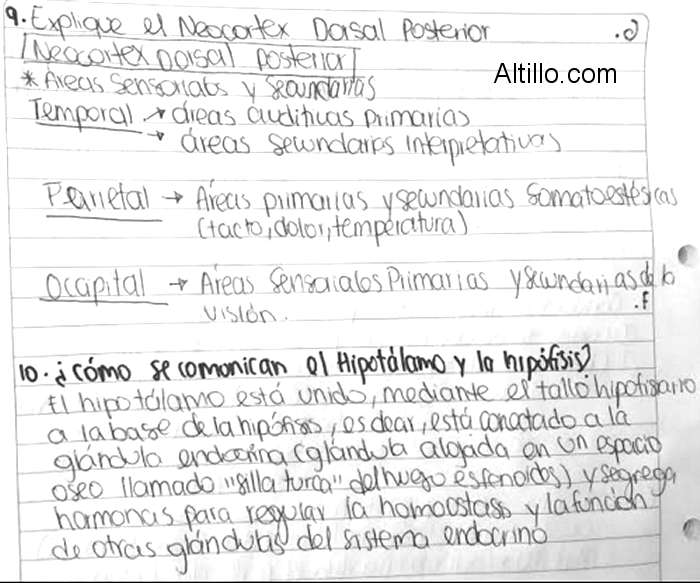 9. Explique el Neocortex Dorsal Posterior
Neocortex Dorsal Posterior
Altillo.com
* Áreas Sensoriales y secundarias
Temporal → áreas auditivas primarias
→ áreas secundarias interpretativas
Parietal → Áreas primarias y secundarias Somatoestésicas
(tacto, dolor, temperatura)
Occipital → Áreas Sensoriales Primarias y secundarias de la
visión.
10. ¿Cómo se comunican el Hipotálamo y la hipófisis?
El hipotálamo está unido, mediante el tallo hipofisiario
a la base de la hipófisis, es decir, está conectado a la
glándula endocrina (glándula alojada en un espacio
oseo llamado "silla turca" del hueso esfenoides) y segrega
hormonas para regular la homeostasis y la función
de otras glándulas del sistema endocrino